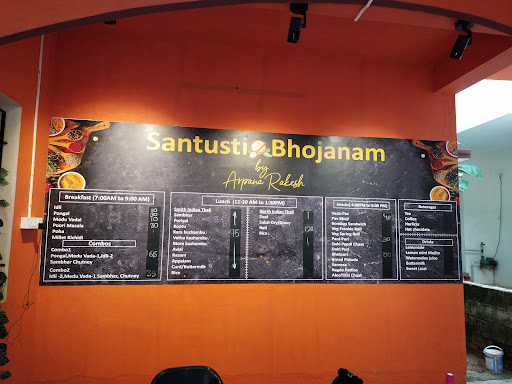 Santusti Bhojanam
by
Arpana Rakesh
Breakfast (7:00AM to 9:00 AM)
Idli
Pongal
Medu Vadai
Poori Masala
Poha
Rava Kichidi
Combos
Combo1
Pongal,Medu Vada-1,Idli-2
Sambhar Chutney
Combo2
Idli -3,Medu Vada-1 Sambhar, Chutney
Lunch (11:30 AM to 1:30PM)
South Indian Thali
Sambhar
Poriyal
Kootu
Kara kozhambu
Vatha kozhambu
More kozhambu
Aviyl
Rasam
Appalam
Curd/Buttermilk
Rice
North Indian Thali
Daal
Sabzi-Dry/Gravy
Roti
Rice
Vada Pav
Pav Bhaji
Bombay Sandwich
Veg Frankie Roll
Veg Spring Roll
Pani-Puri
Dahi Papdi Chaat
Dahi Puri
Bhelpuri
Bread Pakoda
Samosa
Ragda Pattice
Aloo/tikki Chaat
Beverages
Tea
Coffee
Horlicks
Hot chocolate
Drinks
Lemonade
Lemon mint Mojito
Watermelon juice
Buttermilk
Sweet Lassi